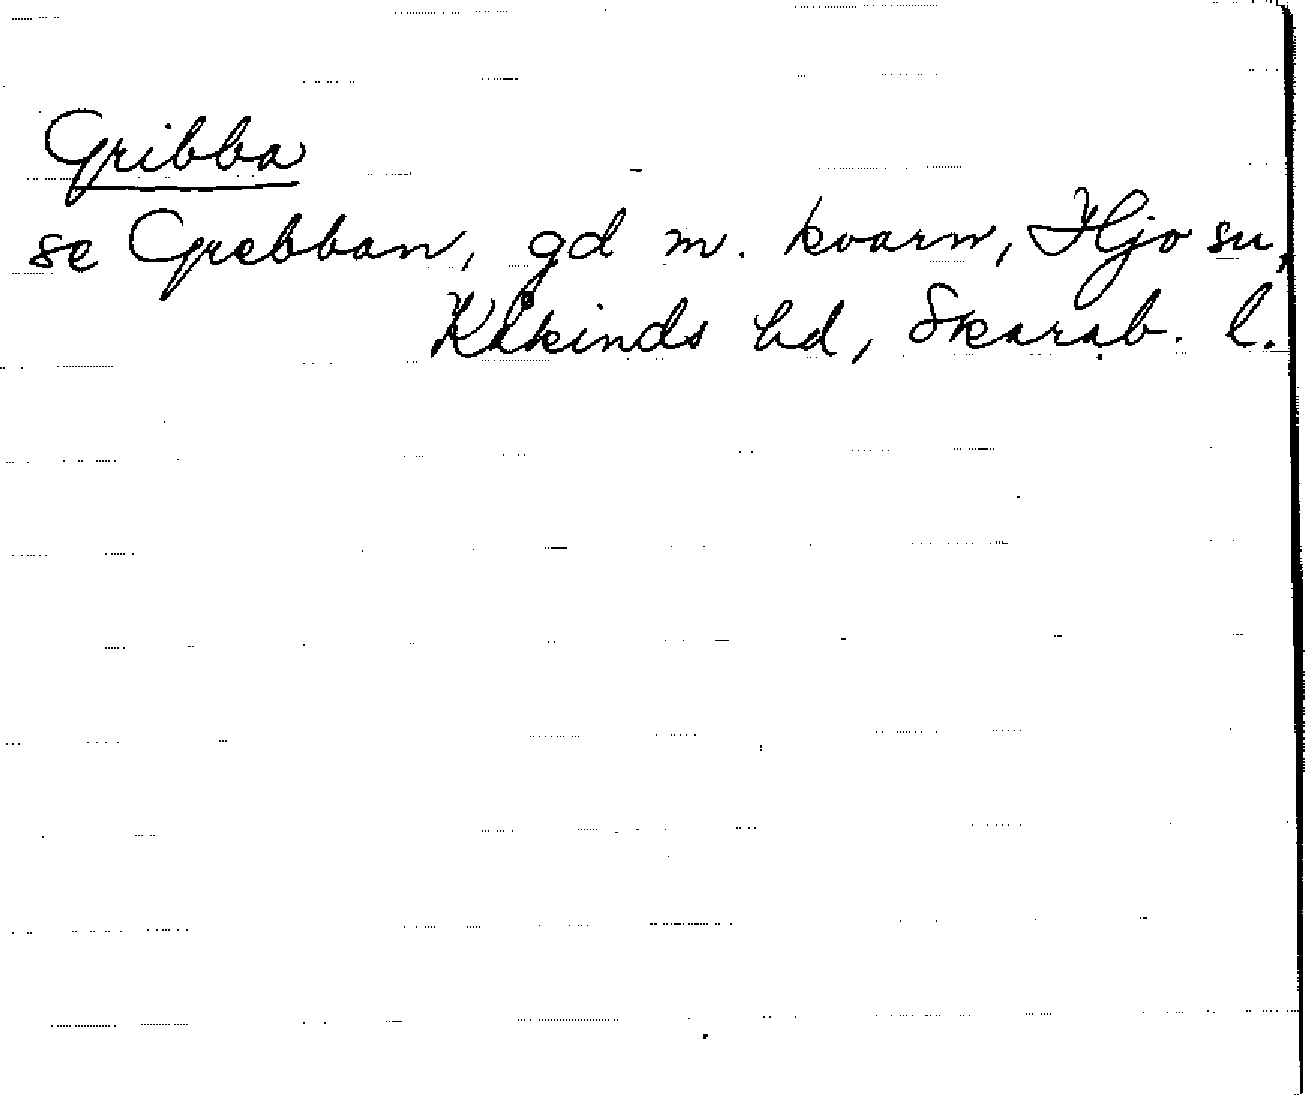 Gribba
se Grebban, gd m. kvarn, Hjo sn,
Kåkinds hd, Skarab. l.